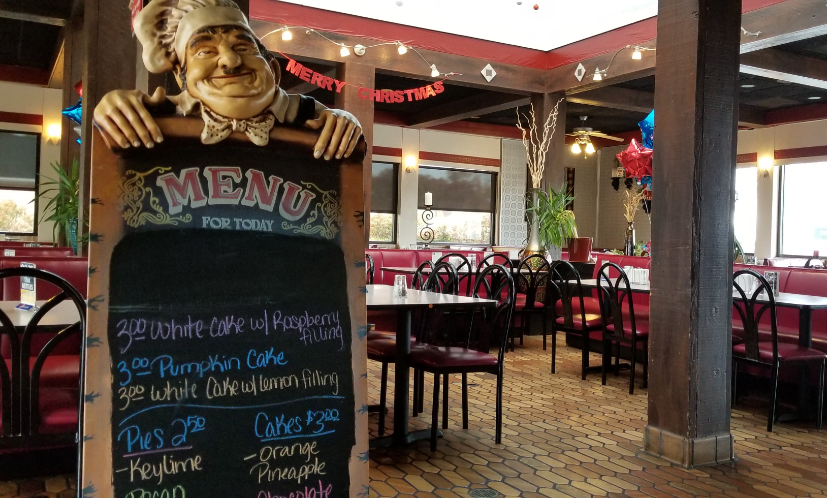 MERRY CHRISTMAS
MENU
FOR TODAY
3.00 White Cake w/ Raspberry
filling
3.00 Pumpkin Cake
3.00 White Cake w/ lemon filling
Pies 2.50
- Keylime
Pecan
Cakes $3.00
- Orange
Pineapple
Chocolate